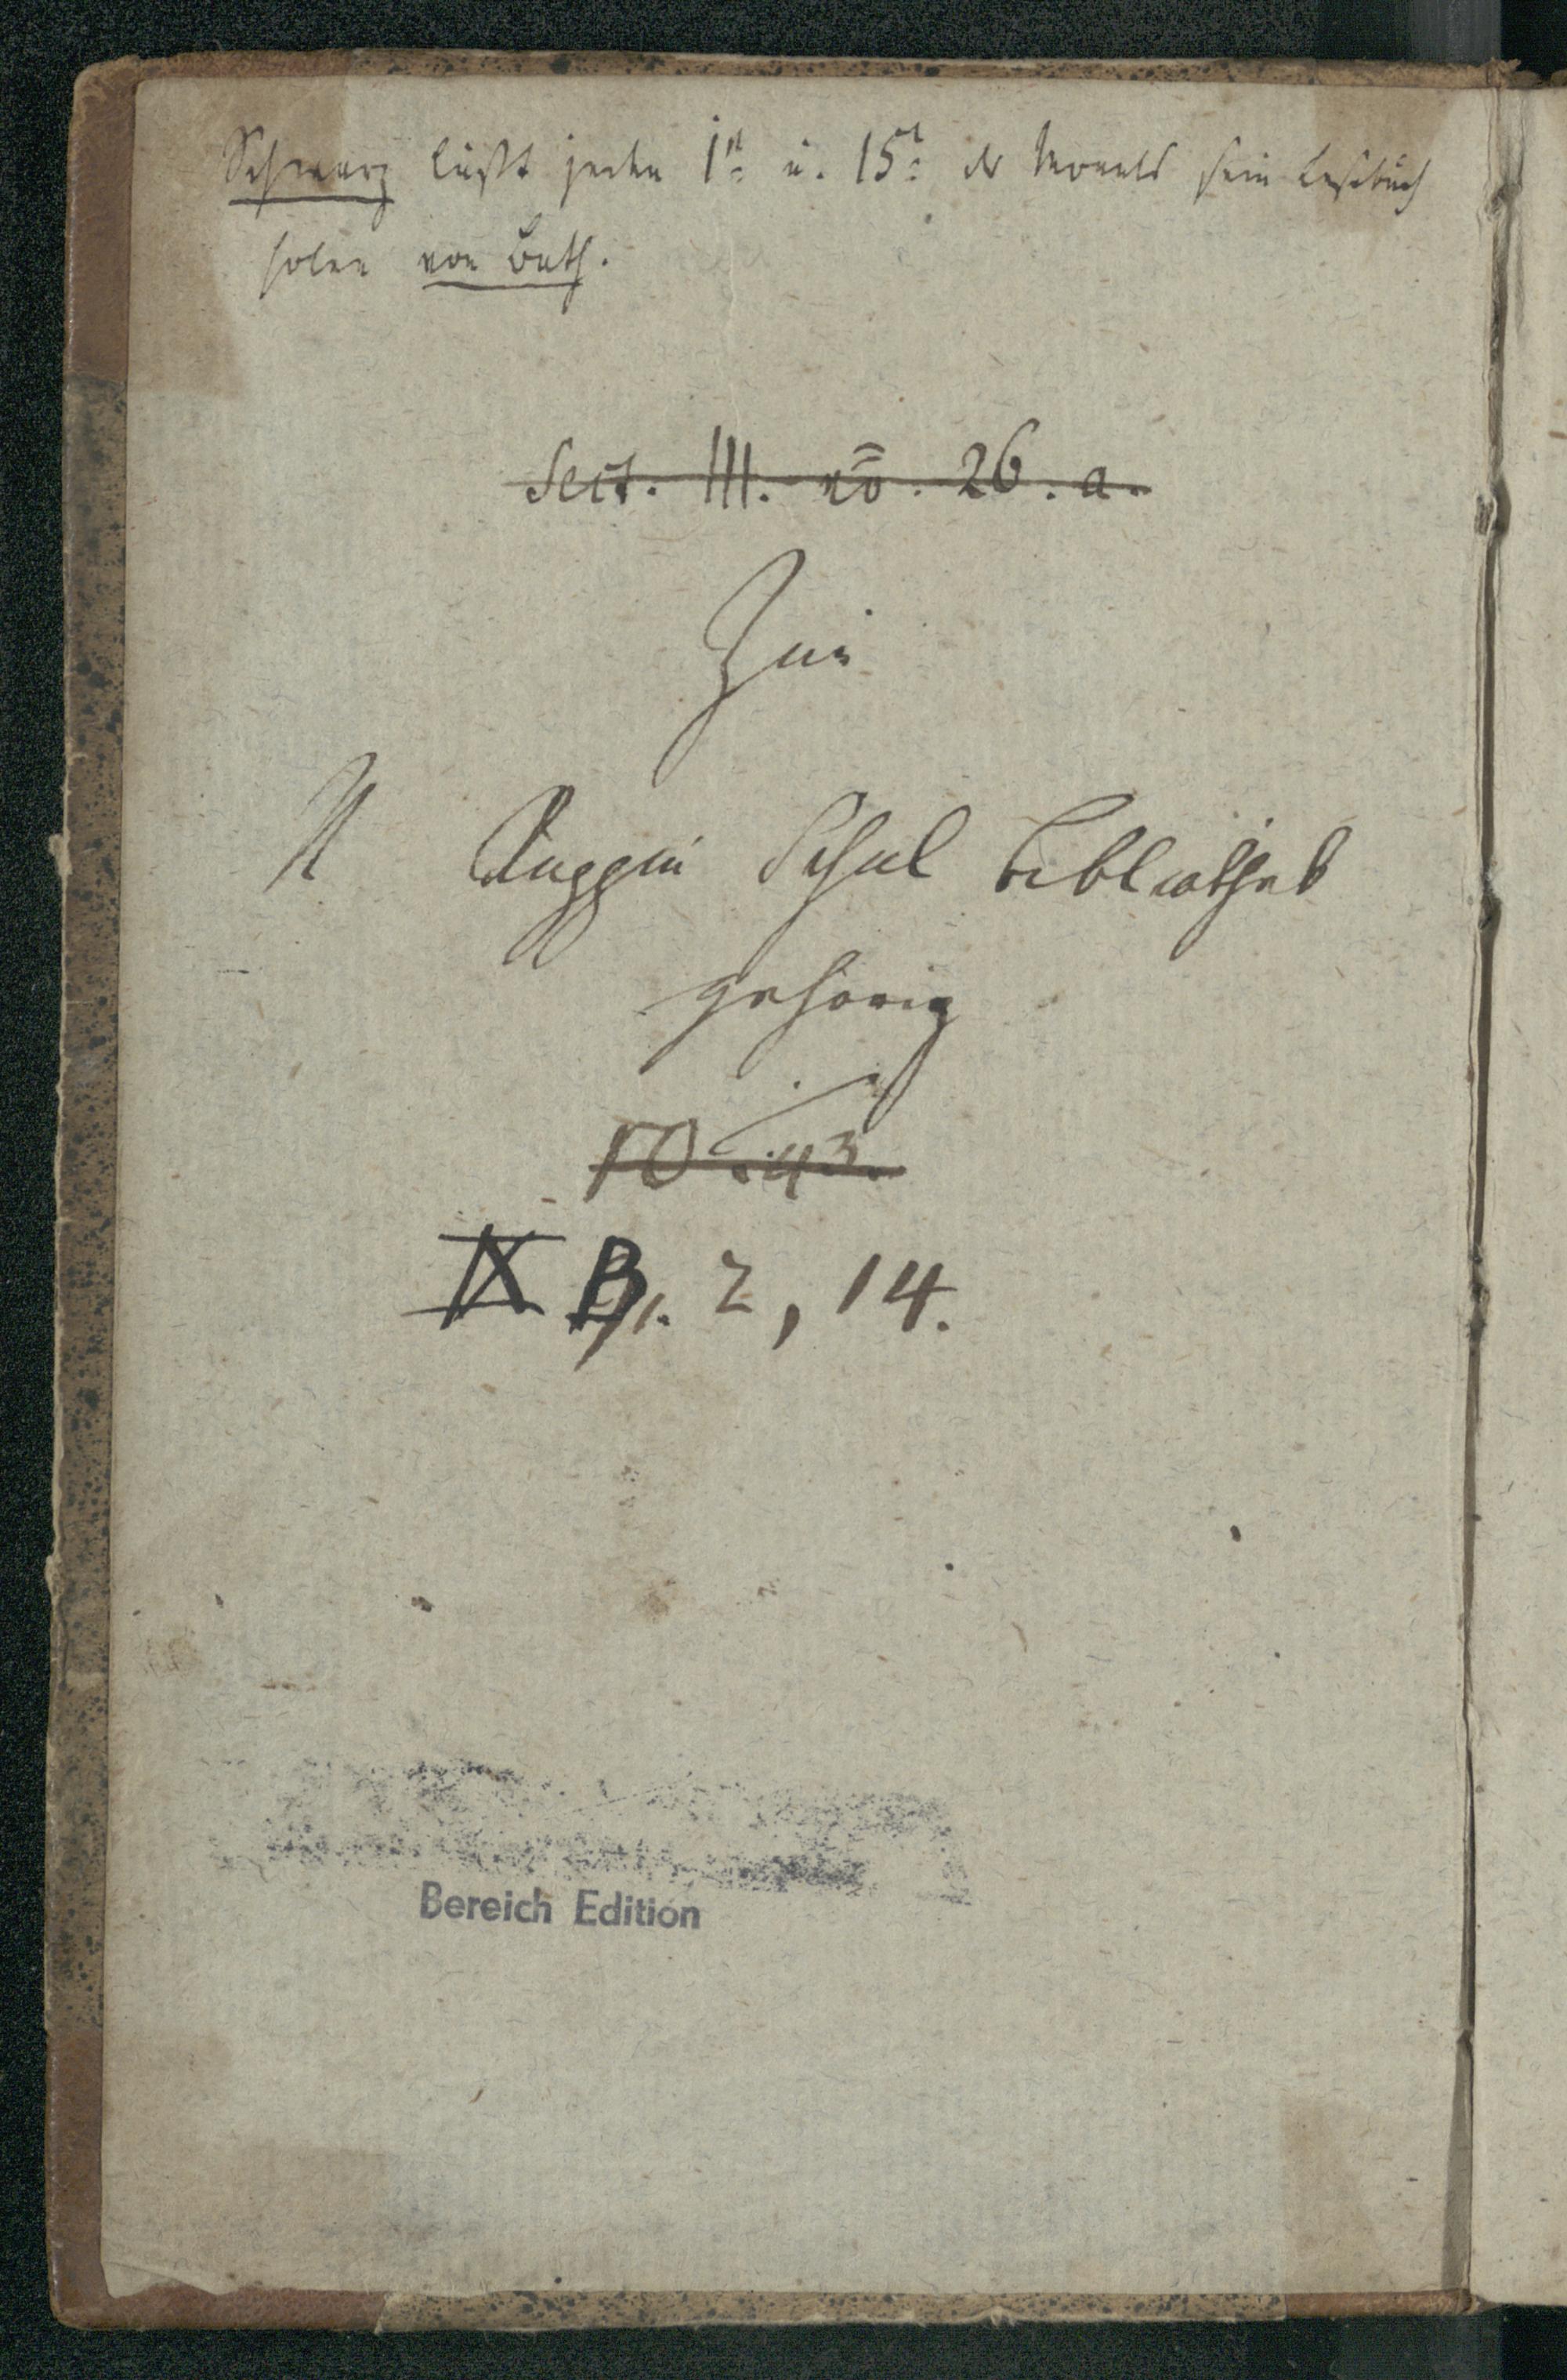 Schwarz läßt jeden 1st u. 15t des Monats sein Lesebuch
holen von Buth.
Sect. III. no. 26. a.
Zur
N Ruppin Schul Bibliothek
gehörig
10.43.
IX B. 2, 14.
Bereich Edition